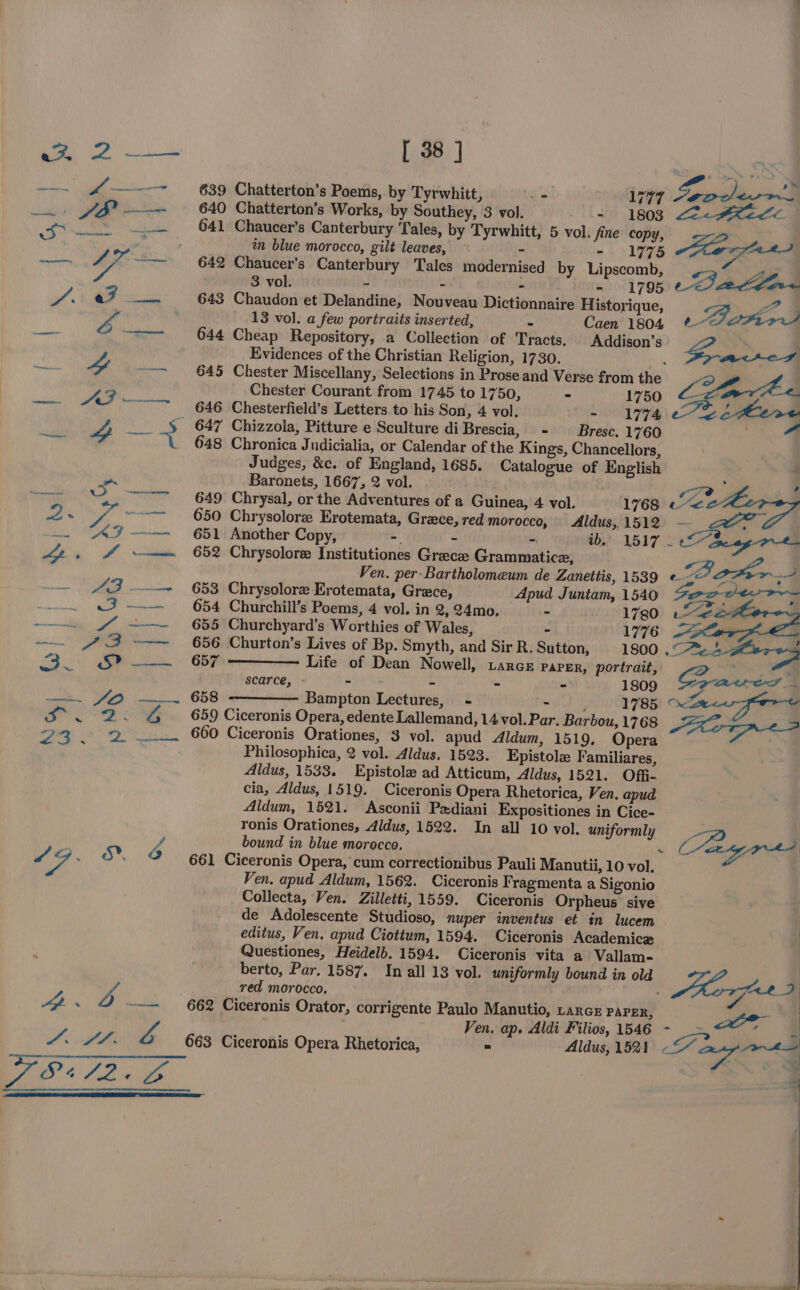 3. 2 —
[ 38 ]
639 Chatterton's Poems, by Tyrwhitt, - 1777
640 Chatterton's Works, by Southey, 3 vol. - 1803
641 Chaucer's Canterbury Tales, by Tyrwhitt, 5 vol. fine copy,
in blue morocco, gilt leaves, - - 1775
642 Chaucer's Canterbury Tales modernised by Lipscomb,
3 vol. - - - - 1795
643 Chaudon et Delandine, Nouveau Dictionnaire Historique,
13 vol. a few portraits inserted, - Caen 1804
644 Cheap Repository, a Collection of Tracts. Addison's
Evidences of the Christian Religion, 1730.
645 Chester Miscellany, Selections in Prose and Verse from the
Chester Courant from 1745 to 1750, - 1750
646 Chesterfield's Letters to his Son, 4 vol. - 1774
647 Chizzola, Pitture e Sculture di Brescia, - Bresc. 1760
648 Chronica Judicialia, or Calendar of the Kings, Chancellors,
Judges, &c. of England, 1685. Catalogue of English
Baronets, 1667, 2 vol.
649 Chrysal, or the Adventures of a Guinea, 4 vol. 1768
2. 7 — 650 Chrysoloræ Erotemata, Græce, red morocco, Aldus, 1512 —
651 Another Copy, - - - ib. 1517
652 Chrysoloræ Institutiones Græcæ Grammaticæ,
Ven. per Bartholomæum de Zanettis, 1539
— 13 — 653 Chrysoloræ Erotemata, Græce, Apud Juntam, 1540
— 3 — 654 Churchill's Poems, 4 vol. in 2, 24mo. - 1780
655 Churchyard's Worthies of Wales, - 1776
— 13 — 656 Churton's Lives of Bp. Smyth, and Sir R. Sutton, 1800
657 ——— Life of Dean Nowell, LARGE PAPER, portrait,
scarce, - - - - 1809
— 10 — 658 ——— Bampton Lectures, - - 1785
5. 2. 6 659 Ciceronis Opera, edente Lallemand, 14 vol. Par. Barbou, 1768
23. 2 — 660 Ciceronis Orationes, 3 vol. apud Aldum, 1519. Opera
Philosophica, 2 vol. Aldus. 1523. Epistolæ Familiares,
Aldus, 1533. Epistolæ ad Atticum, Aldus, 1521. Offi-
cia, Aldus, 1519. Ciceronis Opera Rhetorica, Ven. apud
Aldum, 1521. Asconii Pædiani Expositiones in Cice-
ronis Orationes, Aldus, 1522. In all 10 vol. uniformly
bound in blue morocco. Payne
19. 8. 6 661 Ciceronis Opera, cum correctionibus Pauli Manutii, 10 vol.
Ven. apud Aldum, 1562. Ciceronis Fragmenta a Sigonio
Collecta, Ven. Zilletti, 1559. Ciceronis Orpheus sive
de Adolescente Studioso, nuper inventus et in lucem
editus, Ven. apud Ciottum, 1594. Ciceronis Academicæ
Questiones, Heidelb. 1594. Ciceronis vita a Vallam-
berto, Par. 1587. In all 13 vol. uniformly bound in old
red morocco.
4. 6 — 662 Ciceronis Orator, corrigente Paulo Manutio, LARGE PAPER,
Ven. ap. Aldi Filios, 1546 -
1. 11. 6 663 Ciceronis Opera Rhetorica, - Aldus, 1521 Payne
78 . 12 . 6